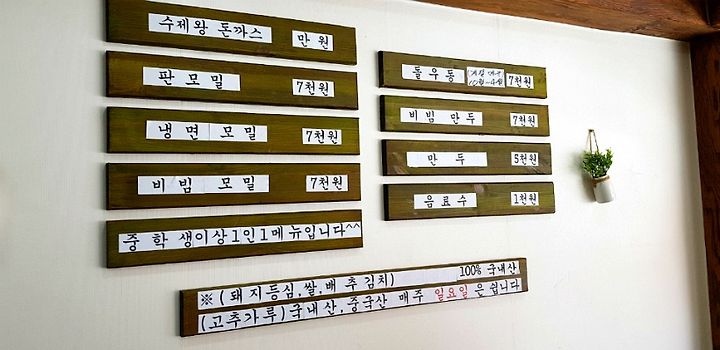 수제왕 돈까스 만원
판모밀 7천원
냉면 모밀 7천원
비빔 모밀 7천원
중학생이상1인1메뉴입니다^^
돌우동 7천원
10월~4월
비빔 만두 7천원
만두 5천원
음료수 1천원
※(돼지등심,쌀,배추김치) 100% 국내산
(고추가루)국내산,중국산 매주 일요일은 쉽니다